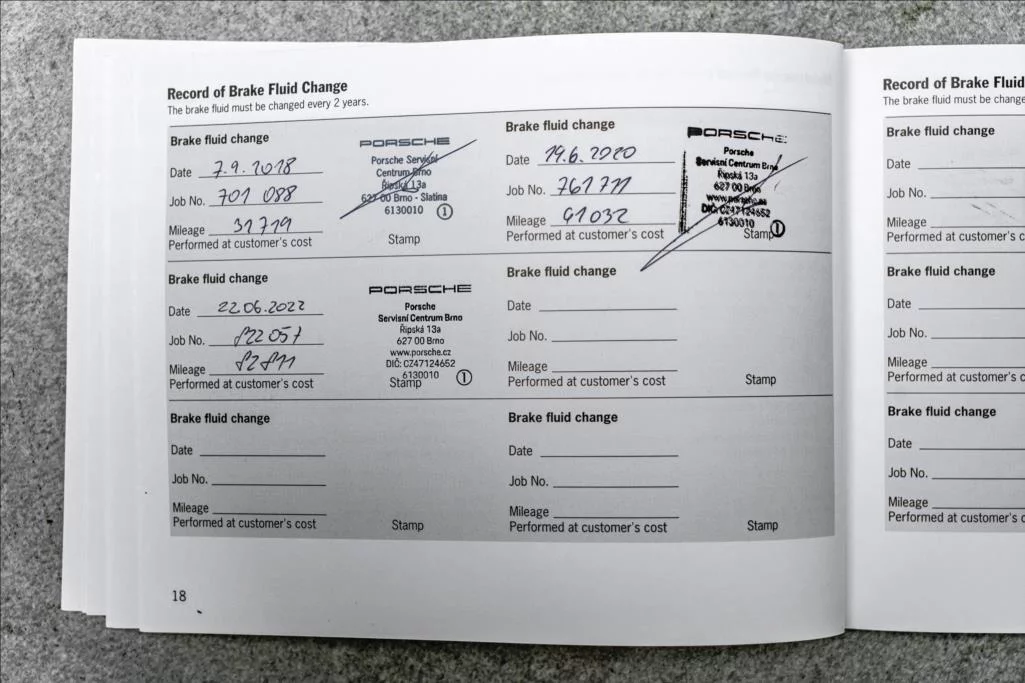 Record of Brake Fluid Change
The brake fluid must be changed every 2 years.
Brake fluid change
Date 7.9.2018
Job No. 701 088
Mileage 31719
Performed at customer's cost
PORSCHE
Porsche Servisní
Centrum Brno
Řipská 13a
627 00 Brno - Slatina
6130010 1
Stamp
Brake fluid change
Date 19.6.2020
Job No. 761711
Mileage 61032
Performed at customer's cost
PORSCHE
Porsche
Servisní Centrum Brno
Řipská 13a
627 00 Brno
www.porsche.cz
DIČ: CZ47124652
6130010
Stamp 1
Brake fluid change
Date 22.06.2022
Job No. 822057
Mileage 82811
Performed at customer's cost
PORSCHE
Porsche
Servisní Centrum Brno
Řipská 13a
627 00 Brno
www.porsche.cz
DIČ: CZ47124652
6130010
Stamp 1
Brake fluid change
Date
Job No.
Mileage
Performed at customer's cost
Stamp
Brake fluid change
Date
Job No.
Mileage
Performed at customer's cost
Stamp
Brake fluid change
Date
Job No.
Mileage
Performed at customer's cost
Stamp
18
Record of Brake Fluid
The brake fluid must be change
Brake fluid change
Date
Job No.
Mileage
Performed at customer's c
Brake fluid change
Date
Job No.
Mileage
Performed at customer's c
Brake fluid change
Date
Job No.
Mileage
Performed at customer's c